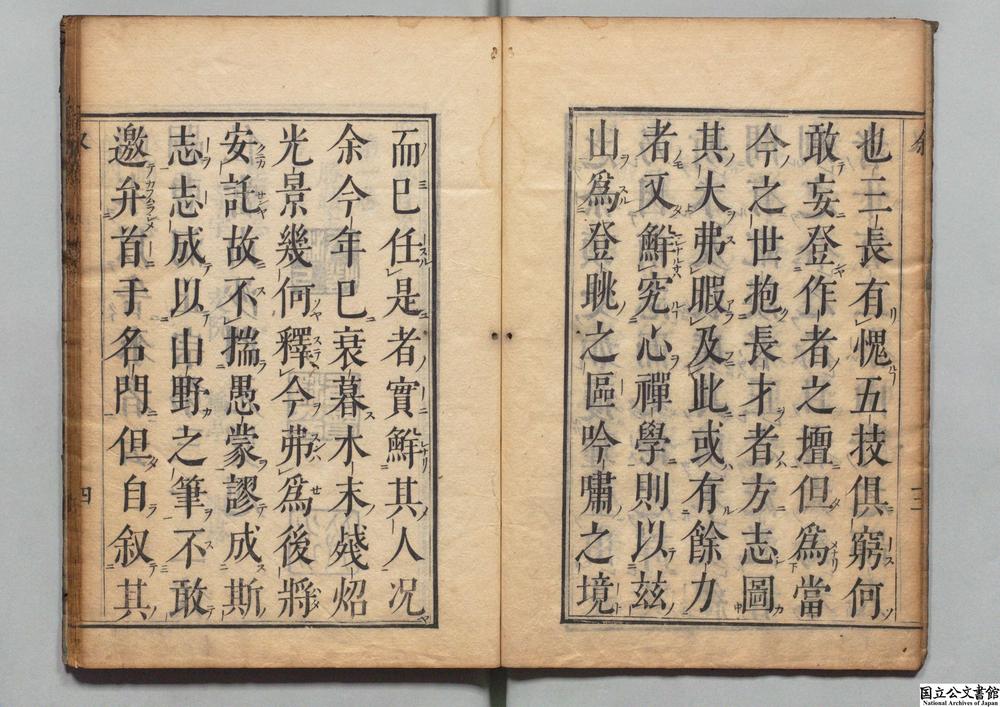 也三長有愧五技俱窮何
敢妄登作者之壇但為當
今之世抱長才者方志圖
其大弗暇及此或有餘力
者又鮮究心禪學則以茲
山爲登眺之區吟嘯之境
三
而已任是者實鮮其人况
余今年已衰暮木末殘炤
光景幾何釋今弗爲後將
安託故不揣愚蒙謬成斯
志志成以山野之筆不敢
邀弁首手名門但自叙其
四
国立公文書館
National Archives of Japan